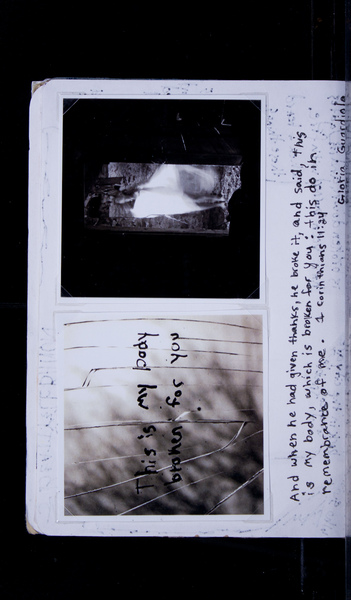 This is my body
broken for you
And when he had given thanks, he broke it, and said, this
is my body, which is broken for you: this do in
remembrance of me. 1 Corinthians 11:24
Gloria Guardiola